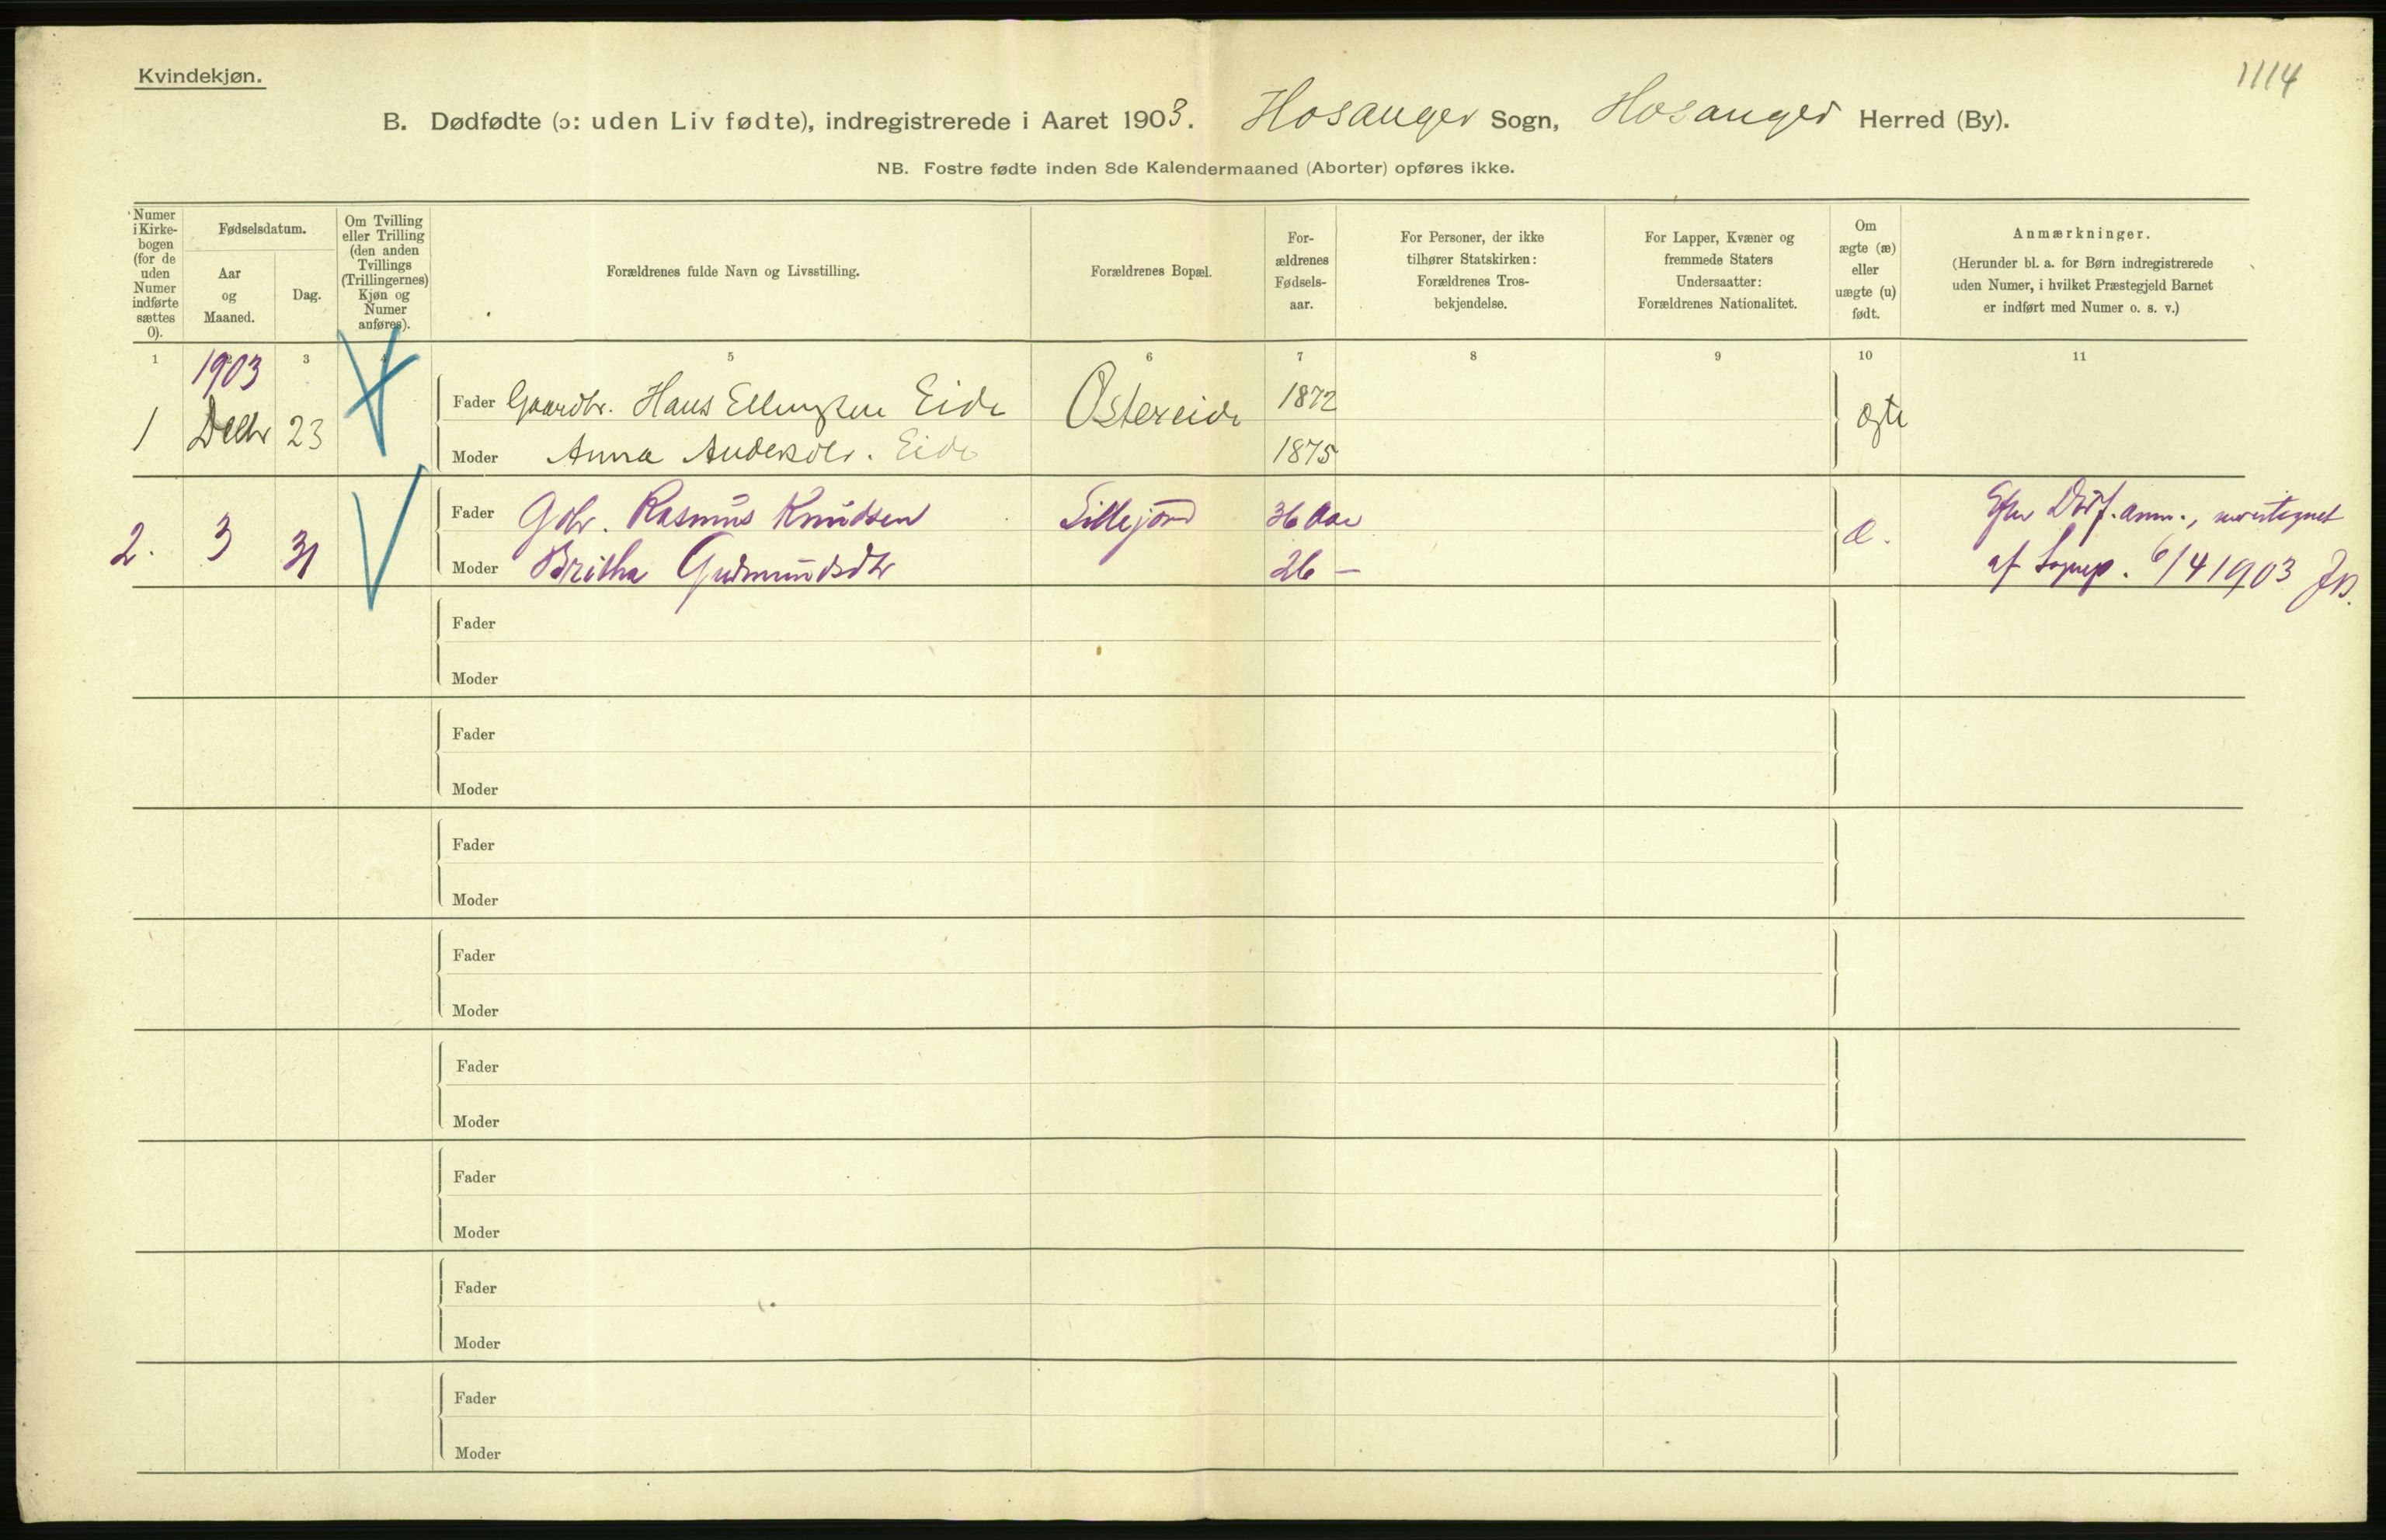 1114
Kvindekjøn.
B. Dødfødte (ɔ: uden Liv fødte), indregistrerede i Aaret 1903. Hosanger Sogn, Hosanger Herred (By).
NB. Fostre fødte inden 8de Kalendermaaned (Aborter) opføres ikke.
Numer i Kirke-bogen (for de uden Numer indførte sættes 0).
Fødselsdatum.
Aar og Maaned.
Dag.
Om Tvilling eller Trilling (den anden Tvillings (Trillingernes) Kjøn og Numer anføres).
Forældrenes fulde Navn og Livsstilling.
Forældrenes Bopæl.
For-ældrenes Fødsels-aar.
For Personer, der ikke tilhører Statskirken: Forældrenes Tros-bekjendelse.
For Lapper, Kvæner og fremmede Staters Undersaatter: Forældrenes Nationalitet.
Om ægte (æ) eller uægte (u) født.
Anmærkninger.
(Herunder bl. a. for Børn indregistrerede uden Numer, i hvilket Præstegjeld Barnet er indført med Numer o. s. v.)
1 2 3 4 5 6 7 8 9 10 11
1903
Fader Gaardbr. Hans Ellingsen Eide Ostereide 1872
1 Decbr 23 ægte
Moder Anna Andersdtr. Eide 1875
Fader Gbr. Rasmus Knudsen 36 Aar
2. 3 31 æ.
Moder Britha Gudmundsdtr 26 —
af 6/4 1903
Fader
Moder
Fader
Moder
Fader
Moder
Fader
Moder
Fader
Moder
Fader
Moder
Fader
Moder
Fader
Moder